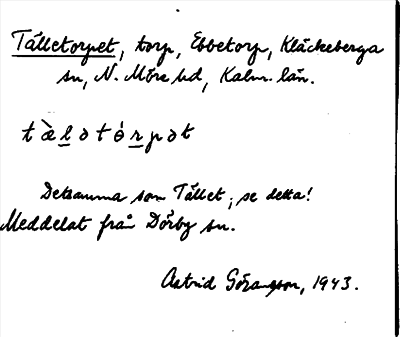 Tälletorpet, torp, Ebbetorp, Kläckeberga
sn, N. Möre hd, Kalm. län.
tæ̀lətórpət
Detsamma som Tället; se detta!
Meddelat från Dörby sn.
Astrid Göransson, 1943.